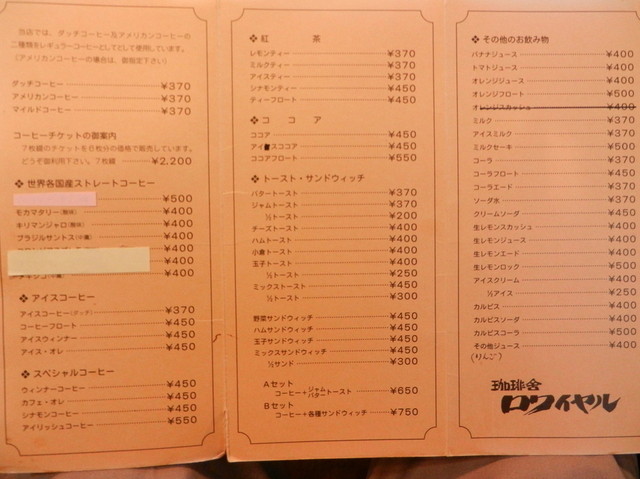 当店では、ダッチコーヒー&アメリカンコーヒーの
二種類をレギュラーコーヒーとしてとして使用しています。
(アメリカンコーヒーの場合は、御指定下さい)
ダッチコーヒー ¥370
アメリカンコーヒー ¥370
マイルドコーヒー ¥370
コーヒーチケットの御案内
7枚綴のチケットを6枚分の価格で販売しています。
どうぞ御利用下さい。7枚綴 ¥2,200
❖ 世界各国産ストレートコーヒー
¥500
モカマタリー(酸味) ¥400
キリマンジャロ(酸味) ¥400
ブラジルサントス(中庸) ¥400
¥400
¥400
¥400
❖ アイスコーヒー
アイスコーヒー(ダッチ) ¥370
コーヒーフロート ¥450
アイスウィンナー ¥450
アイス・オレ ¥450
❖ スペシャルコーヒー
ウィンナーコーヒー ¥450
カフェ・オレ ¥450
シナモンコーヒー ¥450
アイリッシュコーヒー ¥550
❖ 紅茶
レモンティー ¥370
ミルクティー ¥370
アイスティー ¥370
シナモンティー ¥450
ティーフロート ¥450
❖ ココア
ココア ¥450
アイスココア ¥450
ココアフロート ¥550
❖ トースト・サンドウィッチ
バタートースト ¥370
ジャムトースト ¥370
½トースト ¥200
チーズトースト ¥400
ハムトースト ¥400
小倉トースト ¥400
玉子トースト ¥400
½トースト ¥250
ミックストースト ¥450
½トースト ¥300
野菜サンドウィッチ ¥450
ハムサンドウィッチ ¥450
玉子サンドウィッチ ¥450
ミックスサンドウィッチ ¥450
½サンド ¥300
Aセット
コーヒー+ジャムバタートースト ¥650
Bセット
コーヒー+各種サンドウィッチ ¥750
❖ その他のお飲み物
バナナジュース ¥400
トマトジュース ¥400
オレンジジュース ¥400
オレンジフロート ¥500
オレンジスカッシュ ¥400
ミルク ¥370
アイスミルク ¥370
ミルクセーキ ¥500
コーラ ¥370
コーラフロート ¥450
コーラエード ¥370
ソーダ水 ¥370
クリームソーダ ¥450
生レモンスカッシュ ¥400
生レモンジュース ¥400
生レモンエード ¥400
生レモンロック ¥500
アイスクリーム ¥400
½アイス ¥250
カルピス ¥400
カルピスソーダ ¥400
カルピスコーラ ¥500
その他ジュース ¥400
(りんご)
珈琲舎
ロワイヤル